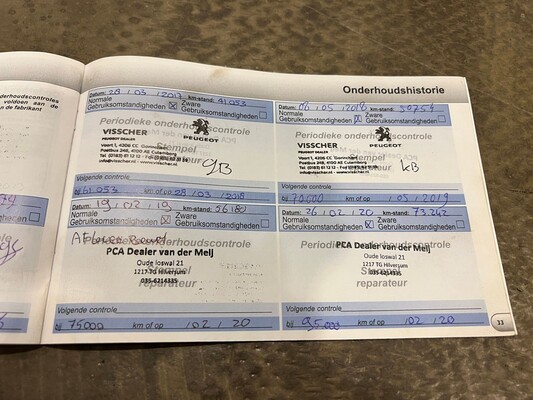 Onderhoudshistorie
nderhoudscontroles
voldoen aan de
n de fabrikant
Datum: 28 / 03 / 2017 km-stand: 41.053
Normale Zware
Gebruiksomstandigheden ☒ Gebruiksomstandigheden ☐
Periodieke onderhoudscontrole
VISSCHER
PEUGEOT DEALER
PEUGEOT
Stempel
reparateur
gB
Volgende controle
bij 61.053 km of op 28 / 03 / 2018
Datum: 06 / 05 / 2018 km-stand: 50754
Normale Zware
Gebruiksomstandigheden ☒ Gebruiksomstandigheden ☐
Periodieke onderhoudscontrole
VISSCHER
PEUGEOT DEALER
PEUGEOT
Stempel
reparateur
kB
Volgende controle
bij 70.000 km of op / 05 / 2019
Datum: 19 / 02 / 19 km-stand: 56180
Normale Zware
Gebruiksomstandigheden ☒ Gebruiksomstandigheden ☐
Periodieke onderhoudscontrole
PCA Dealer van der Meij
Oude loswal 21
1217 TG Hilversum
035-6214335
Stempel
reparateur
Volgende controle
bij 75000 km of op / 02 / 20
Datum: 26 / 02 / 20 km-stand: 73.242
Normale Zware
Gebruiksomstandigheden ☒ Gebruiksomstandigheden ☐
Periodieke onderhoudscontrole
PCA Dealer van der Meij
Oude loswal 21
1217 TG Hilversum
Stempel
reparateur
Volgende controle
bij 95.000 km of op / 02 / 20
33